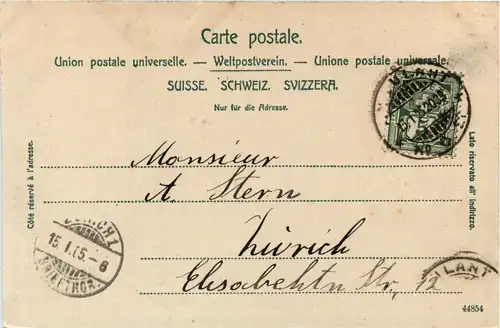 Carte postale.
Union postale universelle. — Weltpostverein. — Unione postale universale.
SUISSE. SCHWEIZ. SVIZZERA.
Nur für die Adresse.
Côté réservé à l'adresse.
Lato riservato all' indirizzo.
Monsieur
A. Stern
Zürich
Elisabethn Str. 12
ZÜRICH 1
15. I. 05. - 6
BRIEFTRGR.
ILANZ
ILANZ
44854